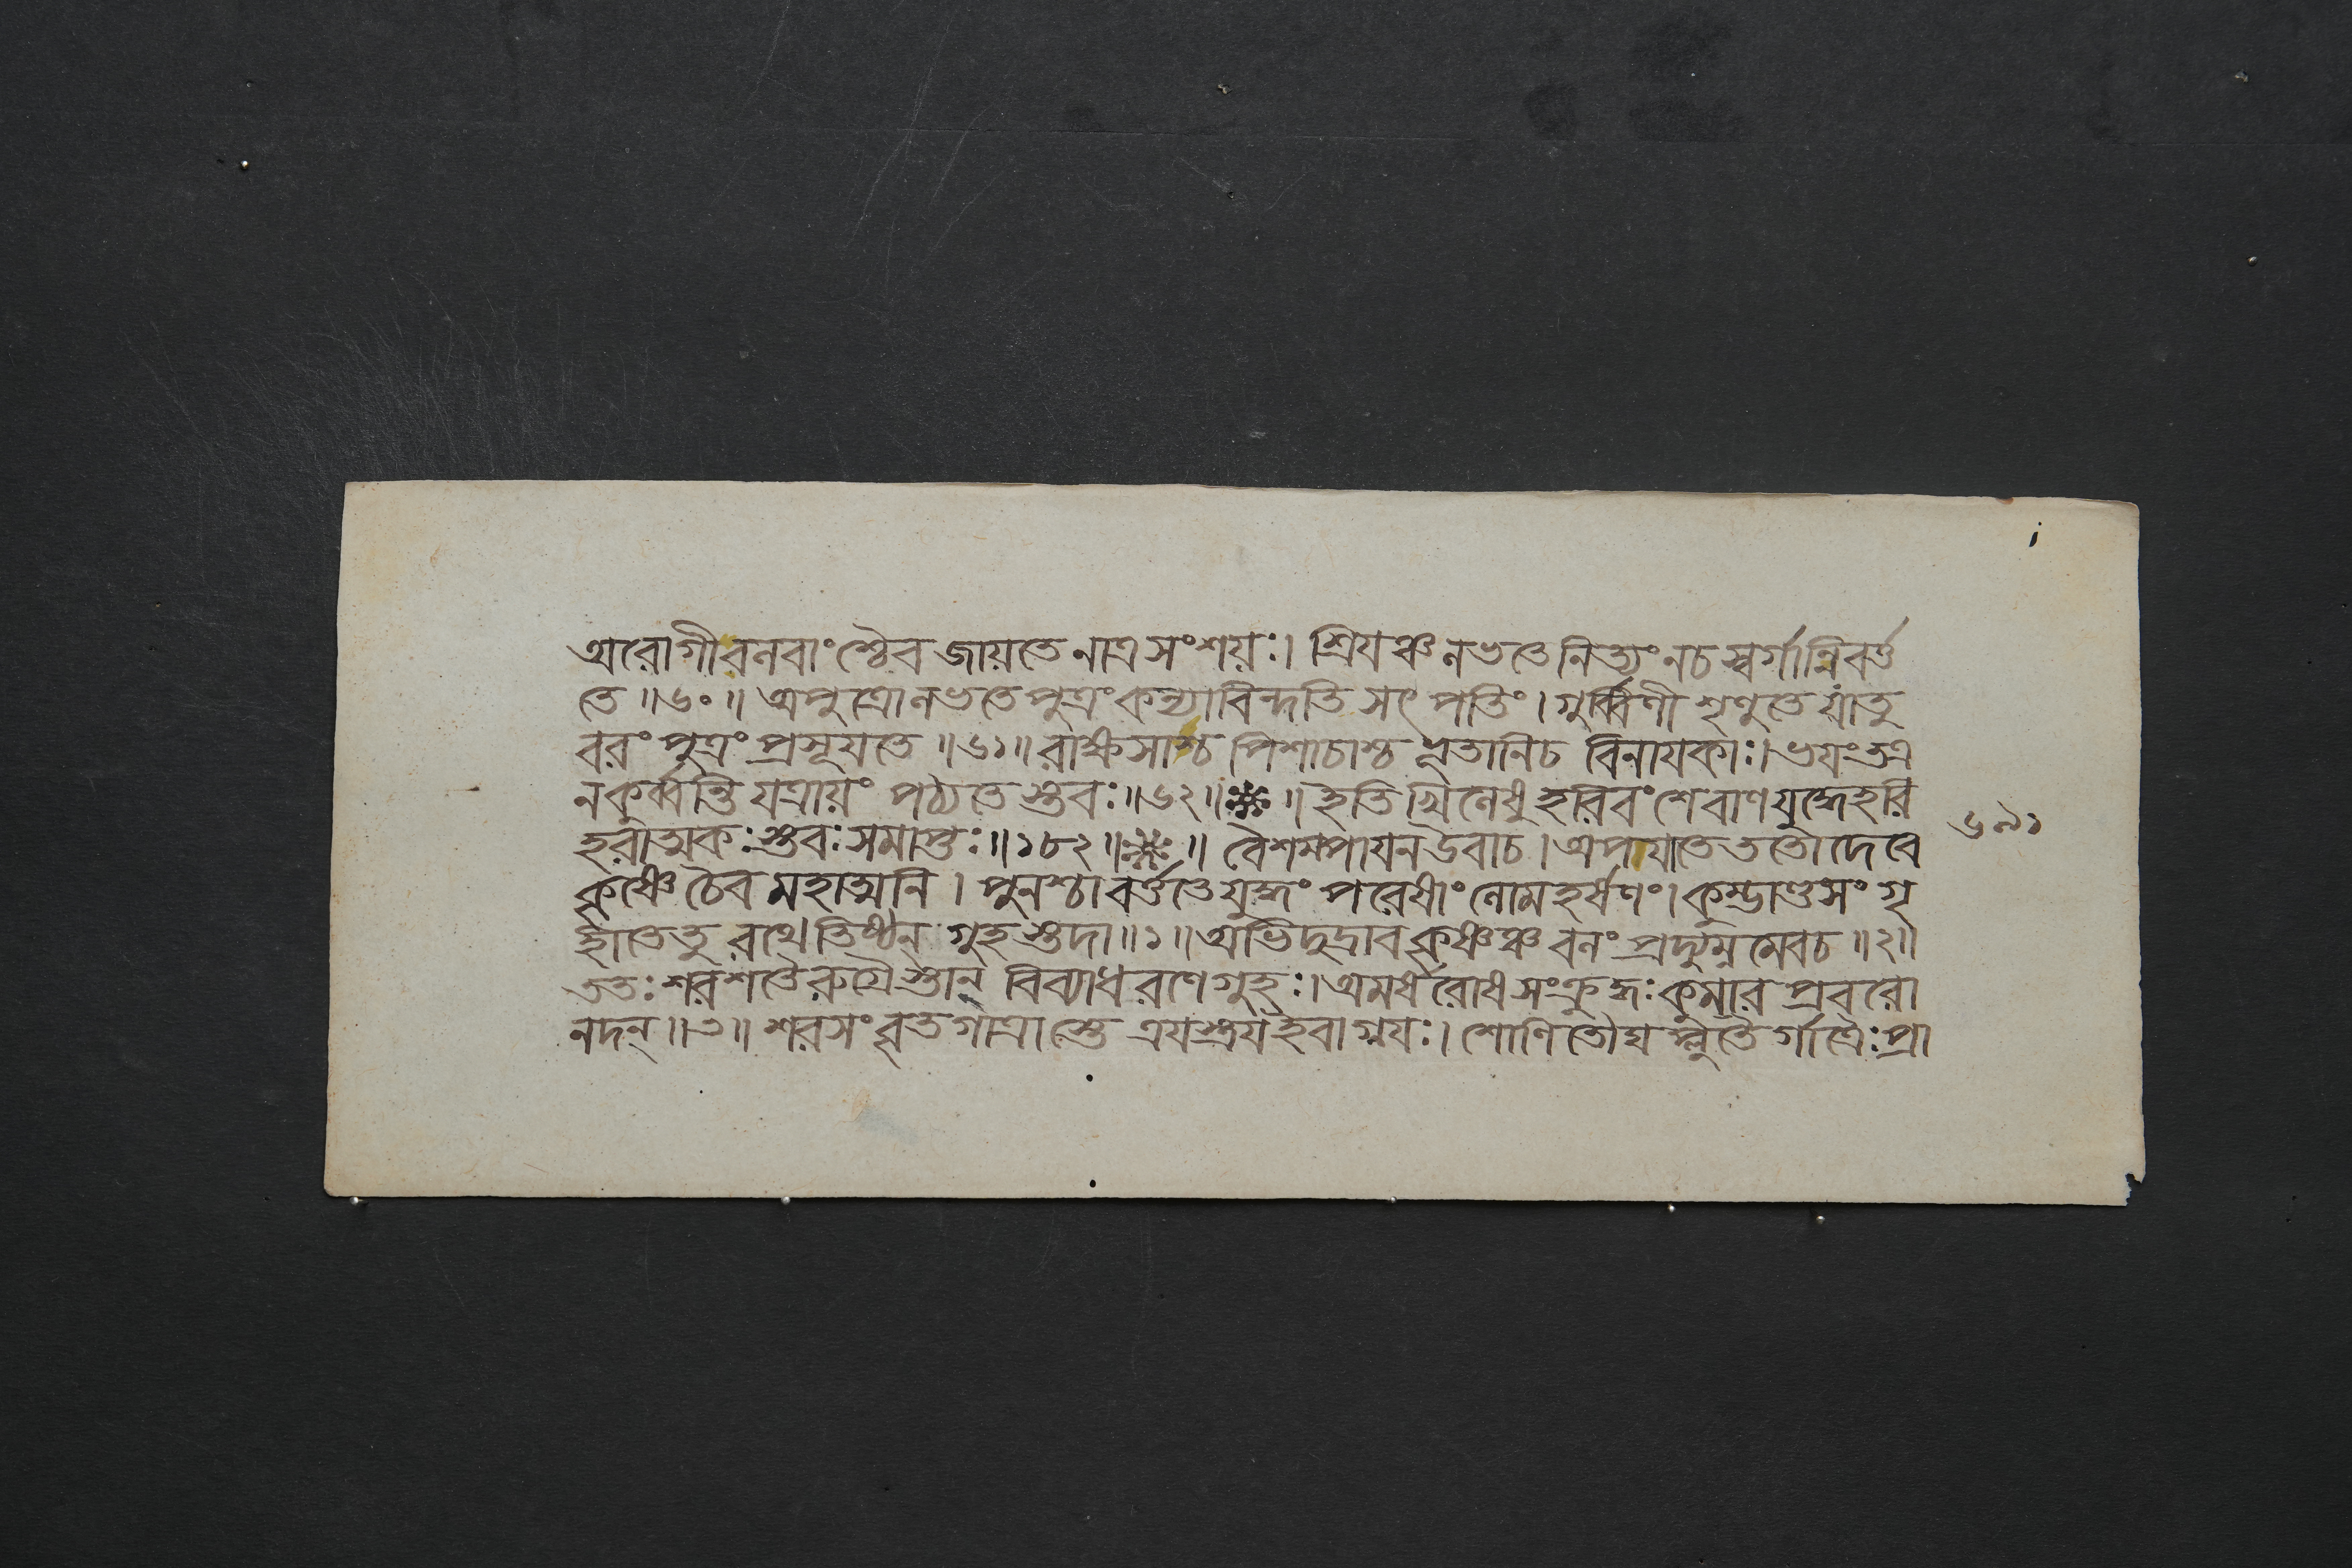 অরোগী বলবাংশ্চৈব জায়তে নাত্র সংশয়ঃ। শ্রিয়ঞ্চ লভতে নিত্যং ন চ স্বর্গান্নিবর্ত্ত
তে ॥৬০॥ অপুত্রো লভতে পুত্রং কন্যা বিন্দতি সৎ পতিং। গুর্ব্বিণী শৃণুতে যাতু
বরং পুত্রং প্রসূয়তে ॥৬১॥ রাক্ষসাশ্চ পিশাচাশ্চ ভূতানি চ বিনায়কাঃ। ভয়ং তত্র
ন কুর্ব্বন্তি যত্রায়ং পঠ্যতে স্তবঃ ॥৬২॥ ॥ ইতি খিলেষু হরিবংশে বাণযুদ্ধে হরি
হরাত্মকঃ স্তবঃ সমাপ্তঃ ॥১৮২॥ ॥ বৈশম্পায়ন উবাচ। অপযাতে ততো দেবে
কৃষ্ণে চৈব মহাত্মনি। পুনশ্চাবর্ত্ততে যুদ্ধং পরেষাং লোমহর্ষণং। কুম্ভাণ্ডসংগৃ
হীতে তু রথে তিষ্ঠন্ গুহস্তদা ॥১॥ অভিদুদ্রাব কৃষ্ণঞ্চ বলং প্রদ্যুম্নমেব চ ॥২॥
ততঃ শরশতৈরুগ্রৈস্তান্ বিব্যাধ রণে গুহঃ। অমর্ষরোষসংক্রুদ্ধঃ কুমারপ্রবরো
নদন্ ॥৩॥ শরসংবৃতগাত্রাস্তে ত্রয়স্ত্রয় ইবাগ্নয়ঃ। শোণিতৌঘপ্লুতৈর্গাত্রৈঃ প্রা
৬৯১